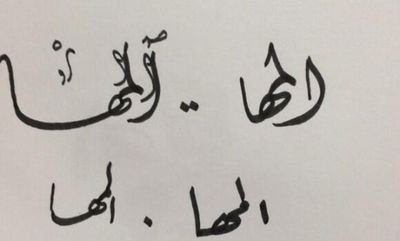 المها .. المها
المها . المها